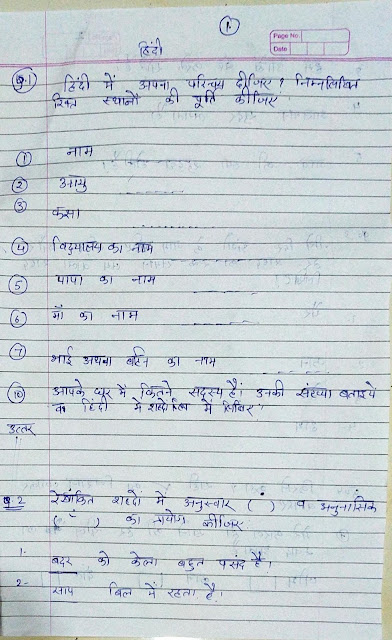 1.
Page No.
Date
हिंदी
Q.1 हिंदी में अपना परिचय दीजिए ? निम्नलिखित
रिक्त स्थानों की पूर्ति कीजिए
① नाम
② आयु
③ कक्षा
④ विद्यालय का नाम
⑤ पापा का नाम
⑥ माँ का नाम
⑦ भाई अथवा बहिन का नाम
⑩ आपके घर में कितने सदस्य हैं। उनकी संख्या बताइये
व हिंदी में शब्दों में लिखिए
उत्तर
Q.2 रेखांकित शब्दों में अनुस्वार ( ं ) व अनुनासिक
( ँ ) का प्रयोग कीजिए
1- बदर को केला बहुत पसंद है।
2- साप बिल में रहता है।